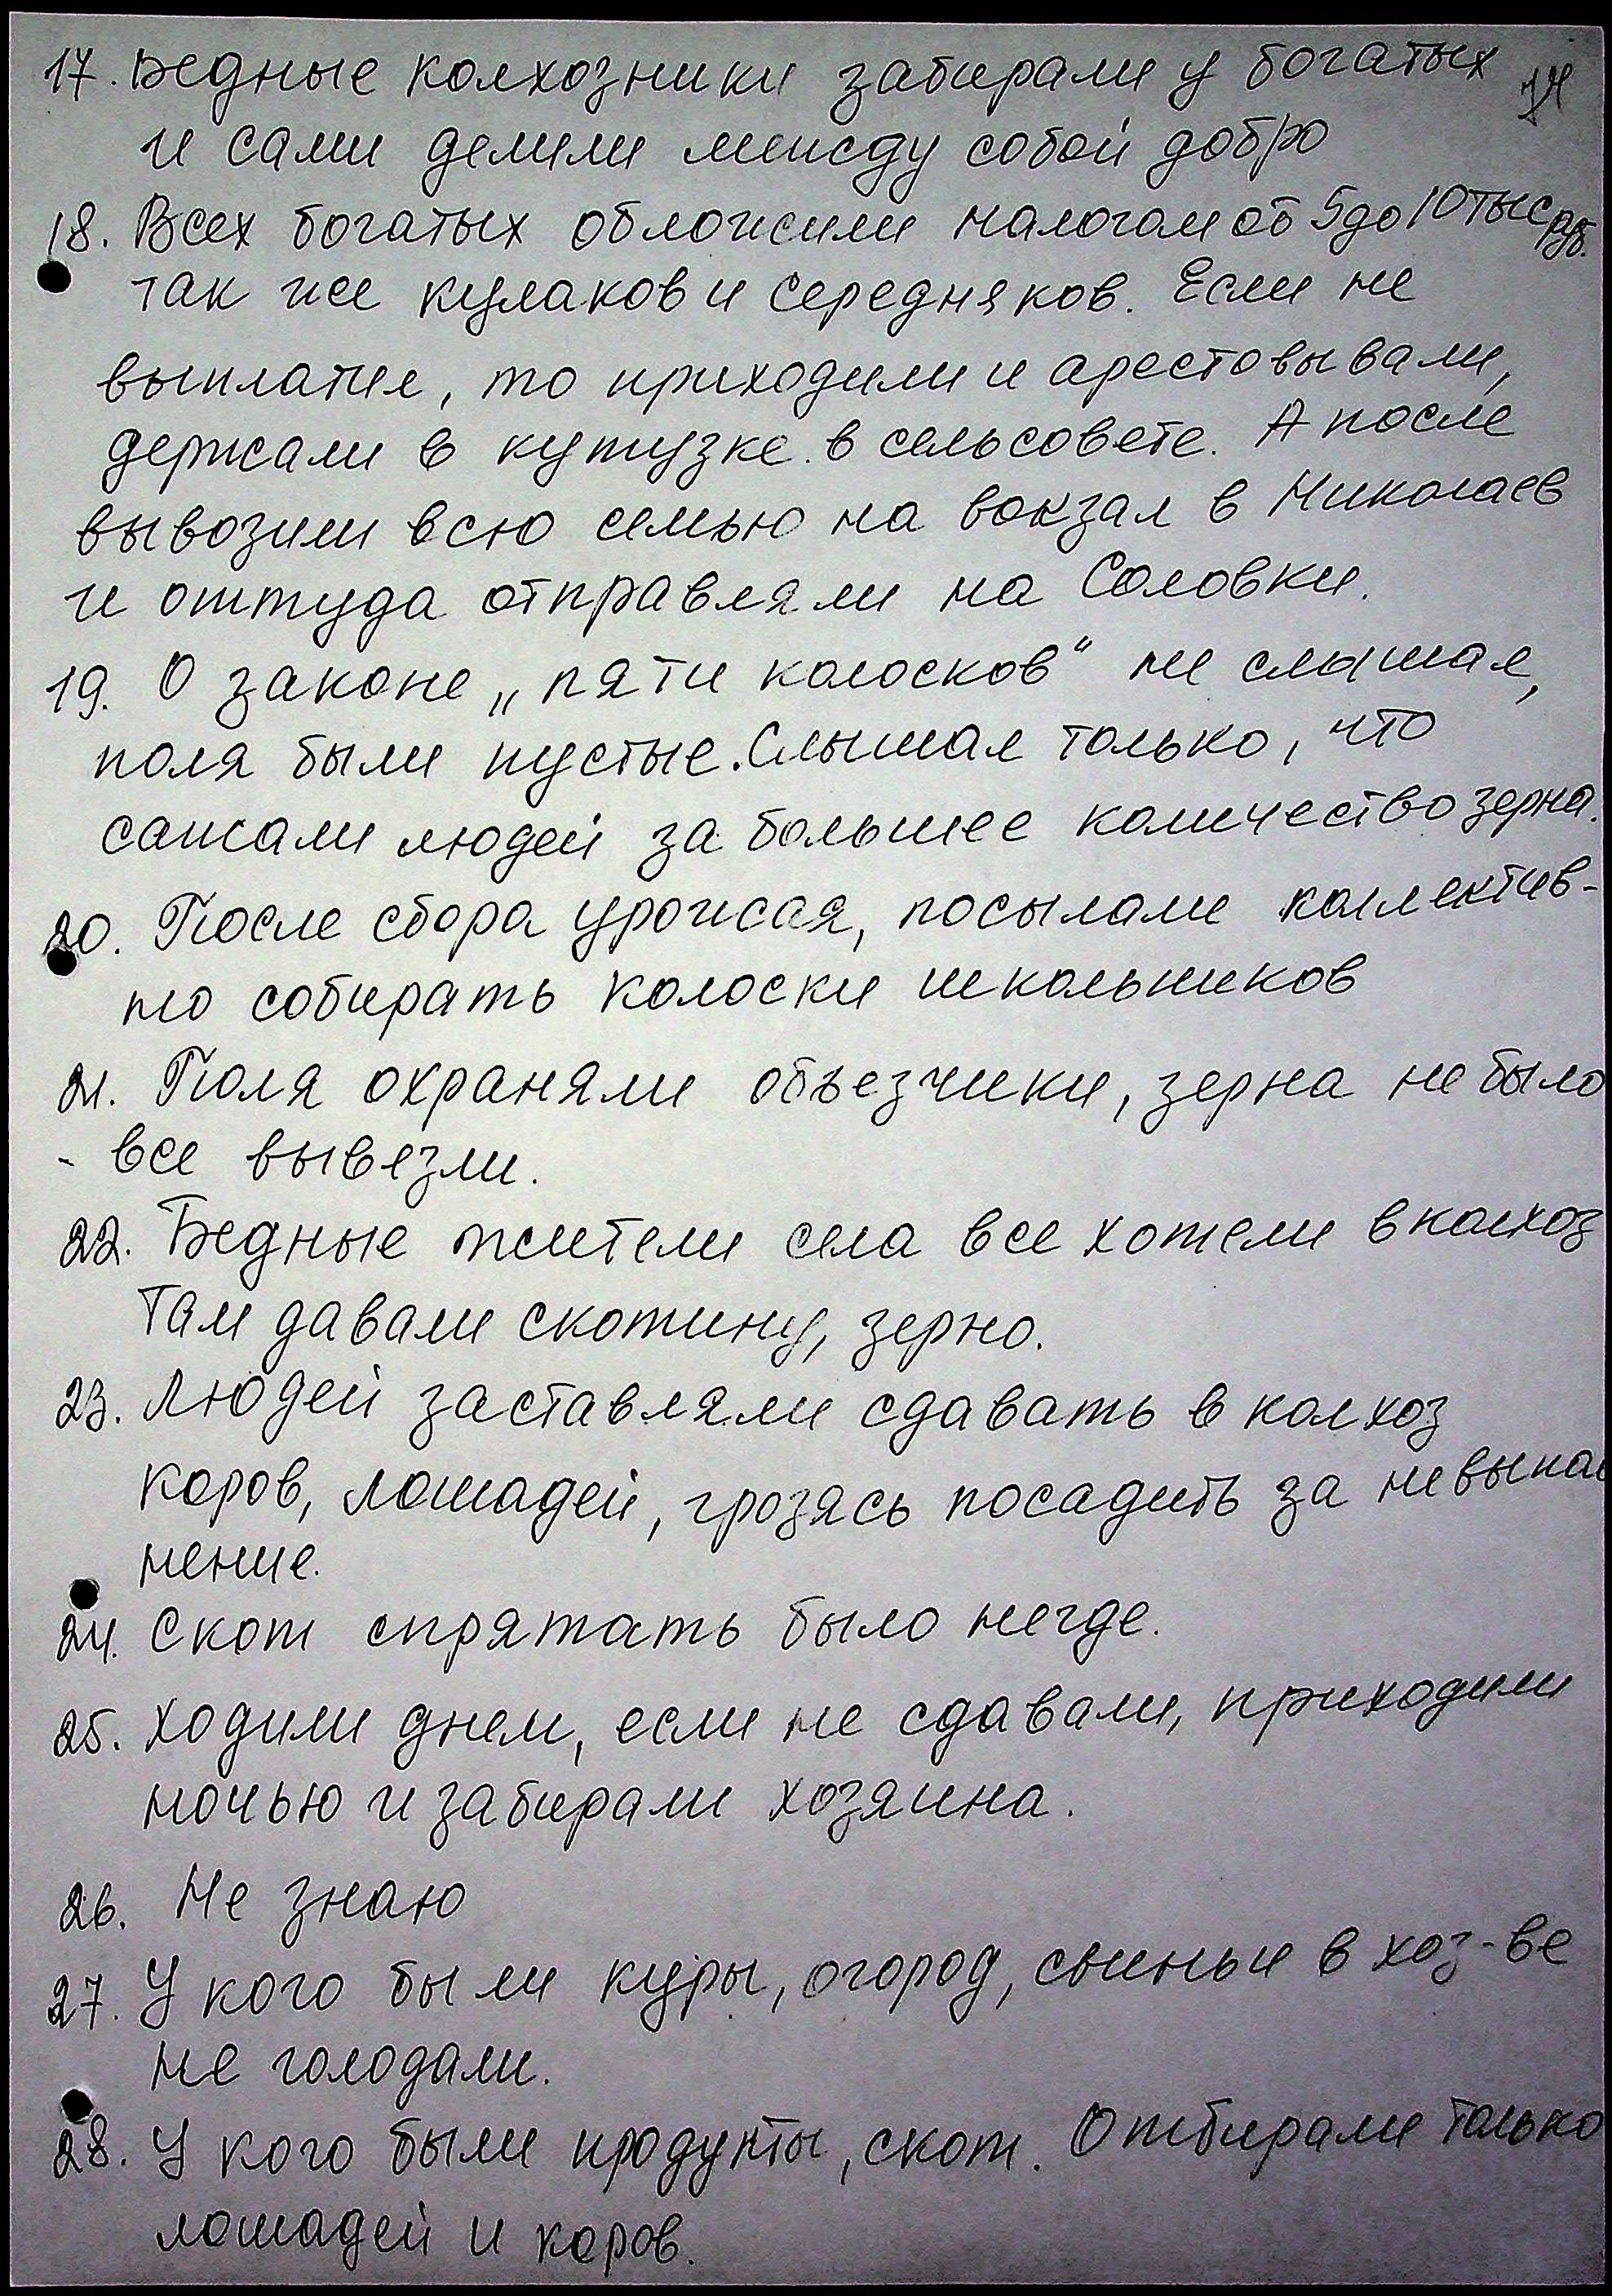 17. Бедные колхозники забирали у богатых
и сами делили между собой добро
18. Всех богатых обложили налогом от 5 до 10 тыс руб.
так же кулаков и середняков. Если не
выплатил, то приходили и арестовывали,
держали в кутузке в сельсовете. А после
вывозили всю семью на вокзал в Николаев
и оттуда отправляли на Соловки.
19. О законе „пяти колосков“ не слышал,
поля были пустые. Слышал только, что
сажали людей за большее количество зерна.
20. После сбора урожая, посылали коллектив-
но собирать колоски школьников
21. Поля охраняли объезчики, зерна не было
- все вывезли.
22. Бедные жители села все хотели в колхоз
Там давали скотину, зерно.
23. Людей заставляли сдавать в колхоз
коров, лошадей, грозясь посадить за невыпол
нение.
24. Скот спрятать было негде.
25. Ходили днем, если не сдавали, приходили
ночью и забирали хозяина.
26. Не знаю
27. У кого были куры, огород, свиньи в хоз-ве
не голодали.
28. У кого были продукты, скот. Отбирали только
лошадей и коров.